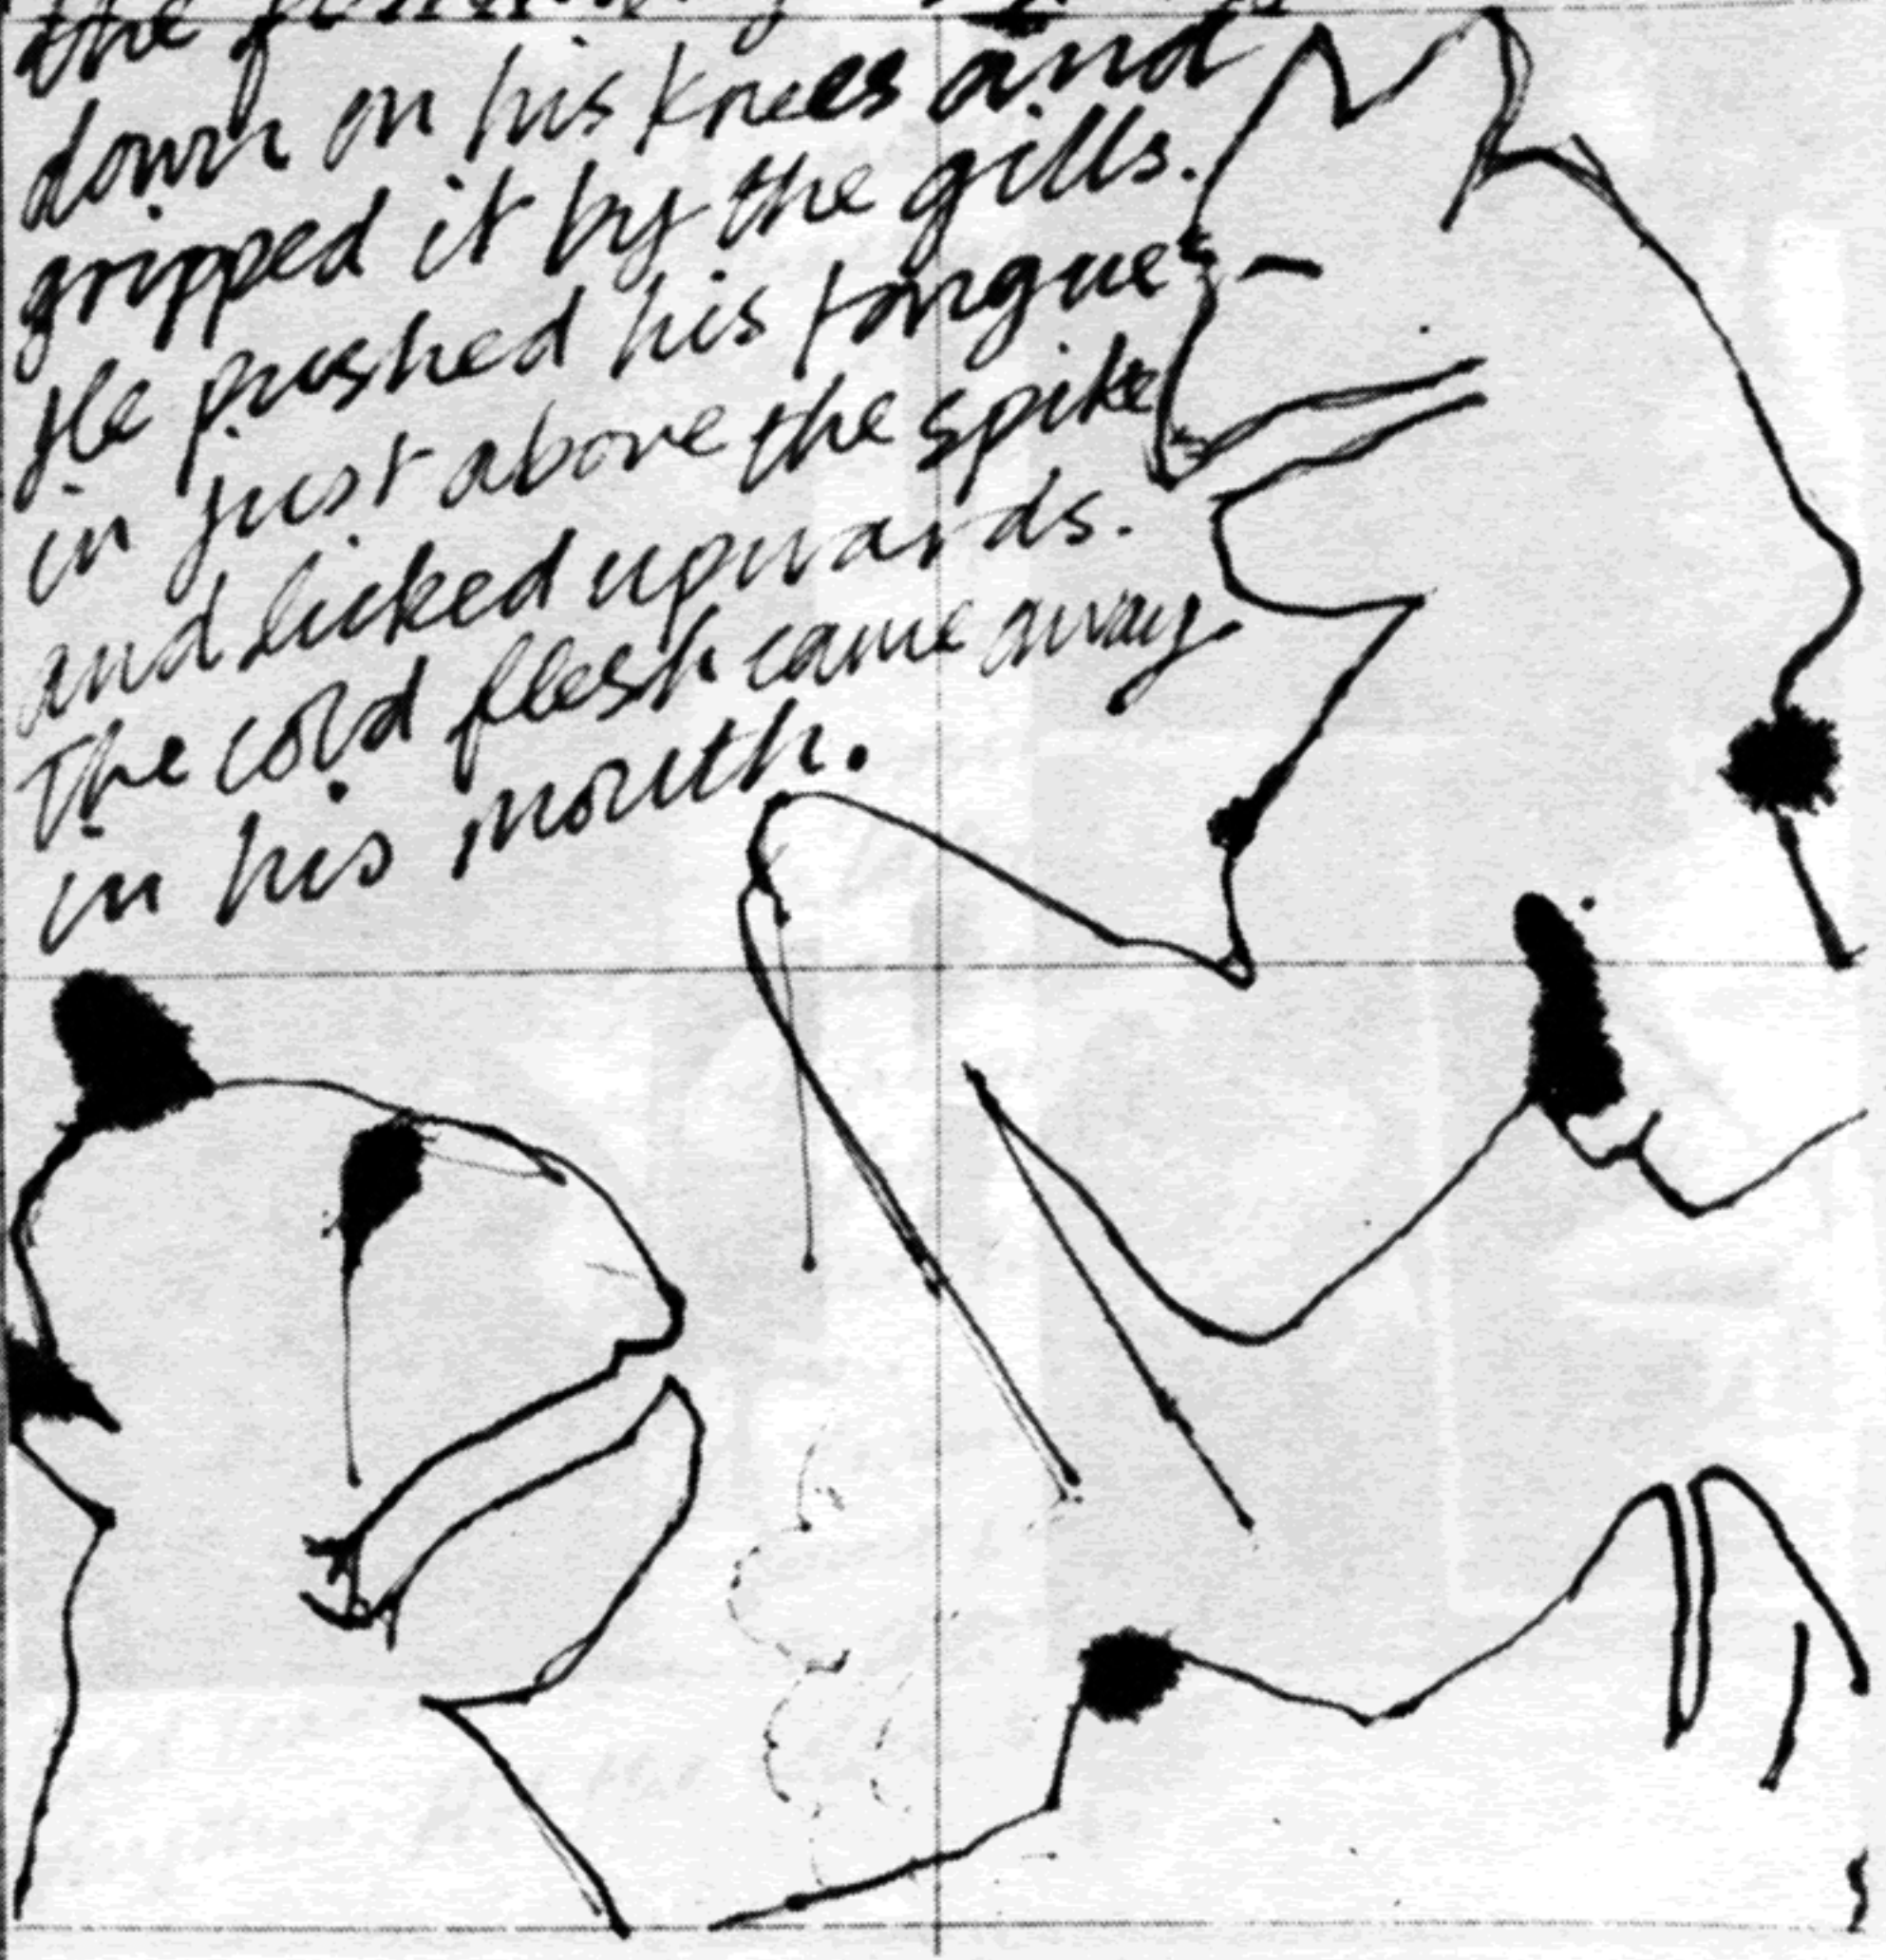 the
down on his knees and
gripped it by the gills.
He pushed his tongue
in just above the spike
and licked upwards.
The cold flesh came away
in his mouth.